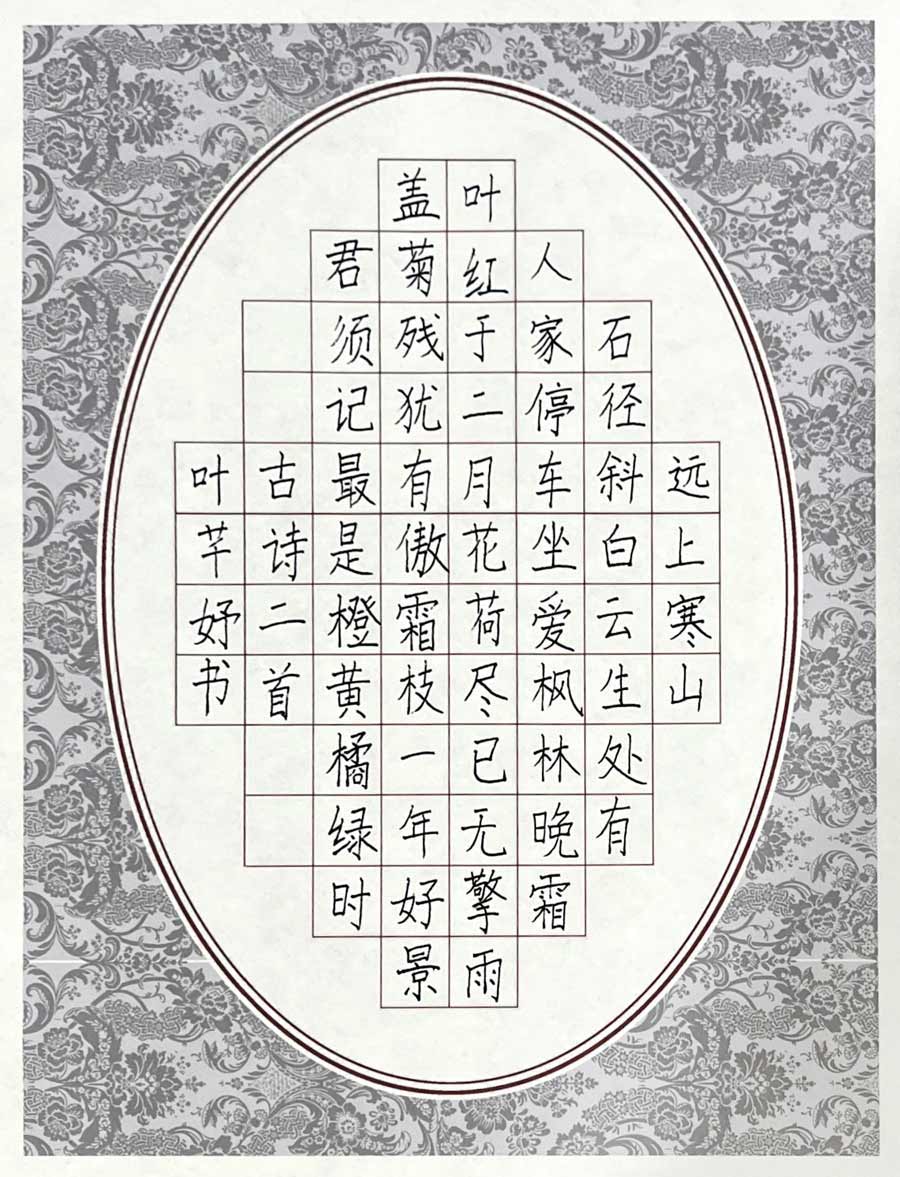 远上寒山
石径斜白云生处有
人家停车坐爱枫林晚霜
叶红于二月花荷尽已无擎雨
盖菊残犹有傲霜枝一年好景
君须记最是橙黄橘绿时
古诗二首
叶芊妤书